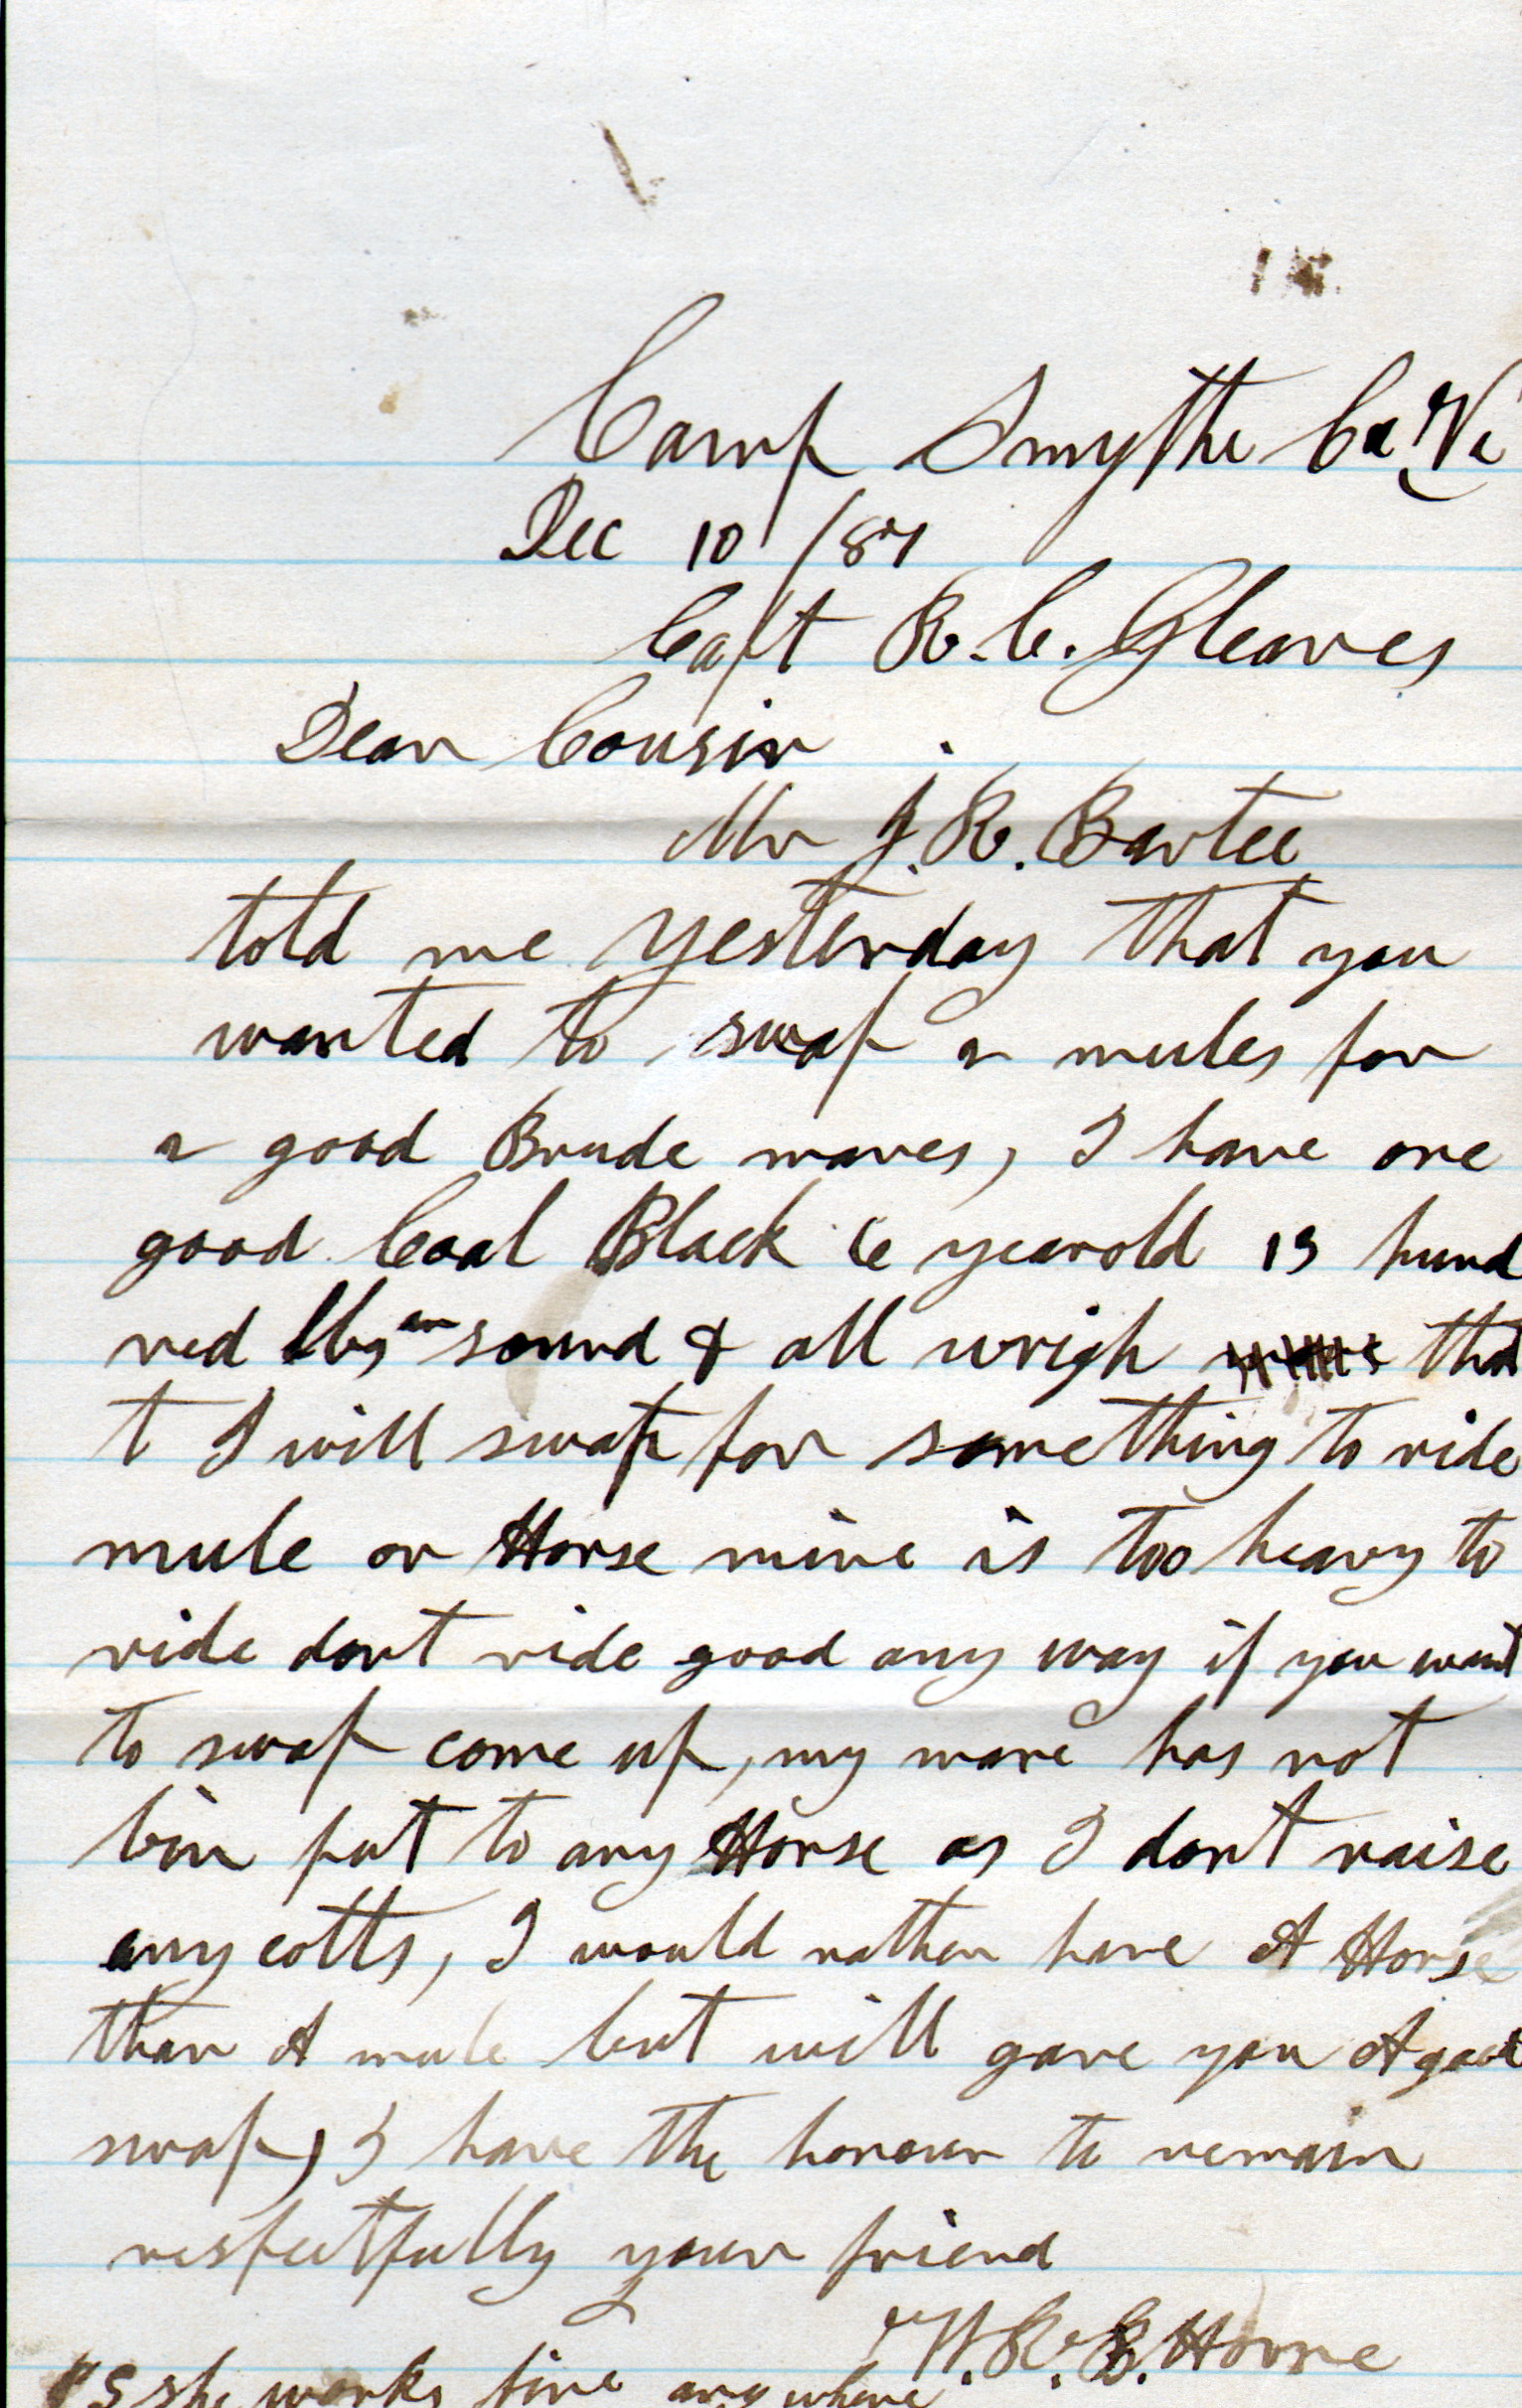 Camp Smythe Co. Va
Dec 10 /87
Capt R. C. Gleaves
Dear Cousin
Mr J. R. Bartee
told me yesterday that you
wanted to swap a mules for
a good Brude mares, I have one
good Coal Black 6 yearold 13 hund
red lbs an sound & all wrigh tha
t I will swap for something to ride
mule or Horse mine is too heavy to
ride dont ride good any way if you want
to swap come up, my mare has not
bin put to any Horse as I dont raise
any colts, I would rather have A Horse
than A mule but will gave you A good
swap, I have the honour to remain
respectfully your friend
W. R. B. Horne
PS she works fine any where